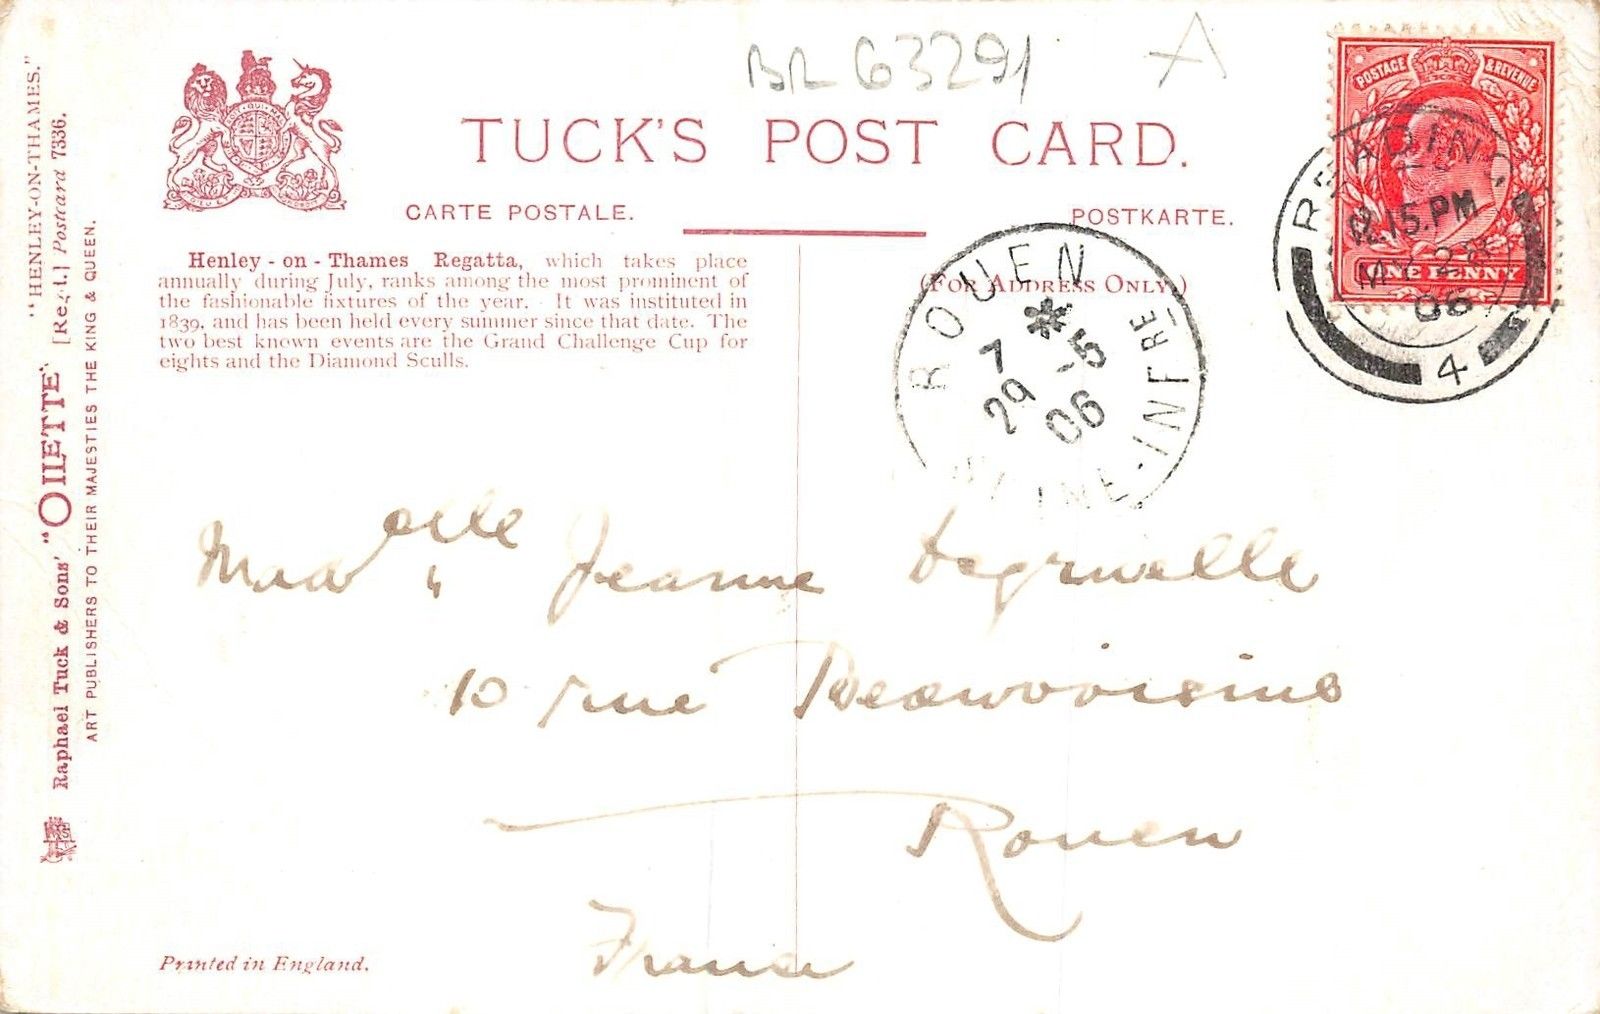 BR 63291 A
TUCK'S POST CARD.
CARTE POSTALE.
POSTKARTE.
Henley-on-Thames Regatta, which takes place
annually during July, ranks among the most prominent of
the fashionable fixtures of the year. It was instituted in
1839, and has been held every summer since that date. The
two best known events are the Grand Challenge Cup for
eights and the Diamond Sculls.
(FOR ADDRESS ONLY.)
POSTAGE & REVENUE
ONE PENNY
READING
12.15.PM
MY 28
06
4
ROUEN
7 * -5
29 06
SEINE-INFRE
Madelle Jeanne
10 rue
Rouen
France
"HENLEY-ON-THAMES."
Raphael Tuck & Sons' "OILETTE" [Regd.] Postcard 7336.
ART PUBLISHERS TO THEIR MAJESTIES THE KING & QUEEN.
Printed in England.